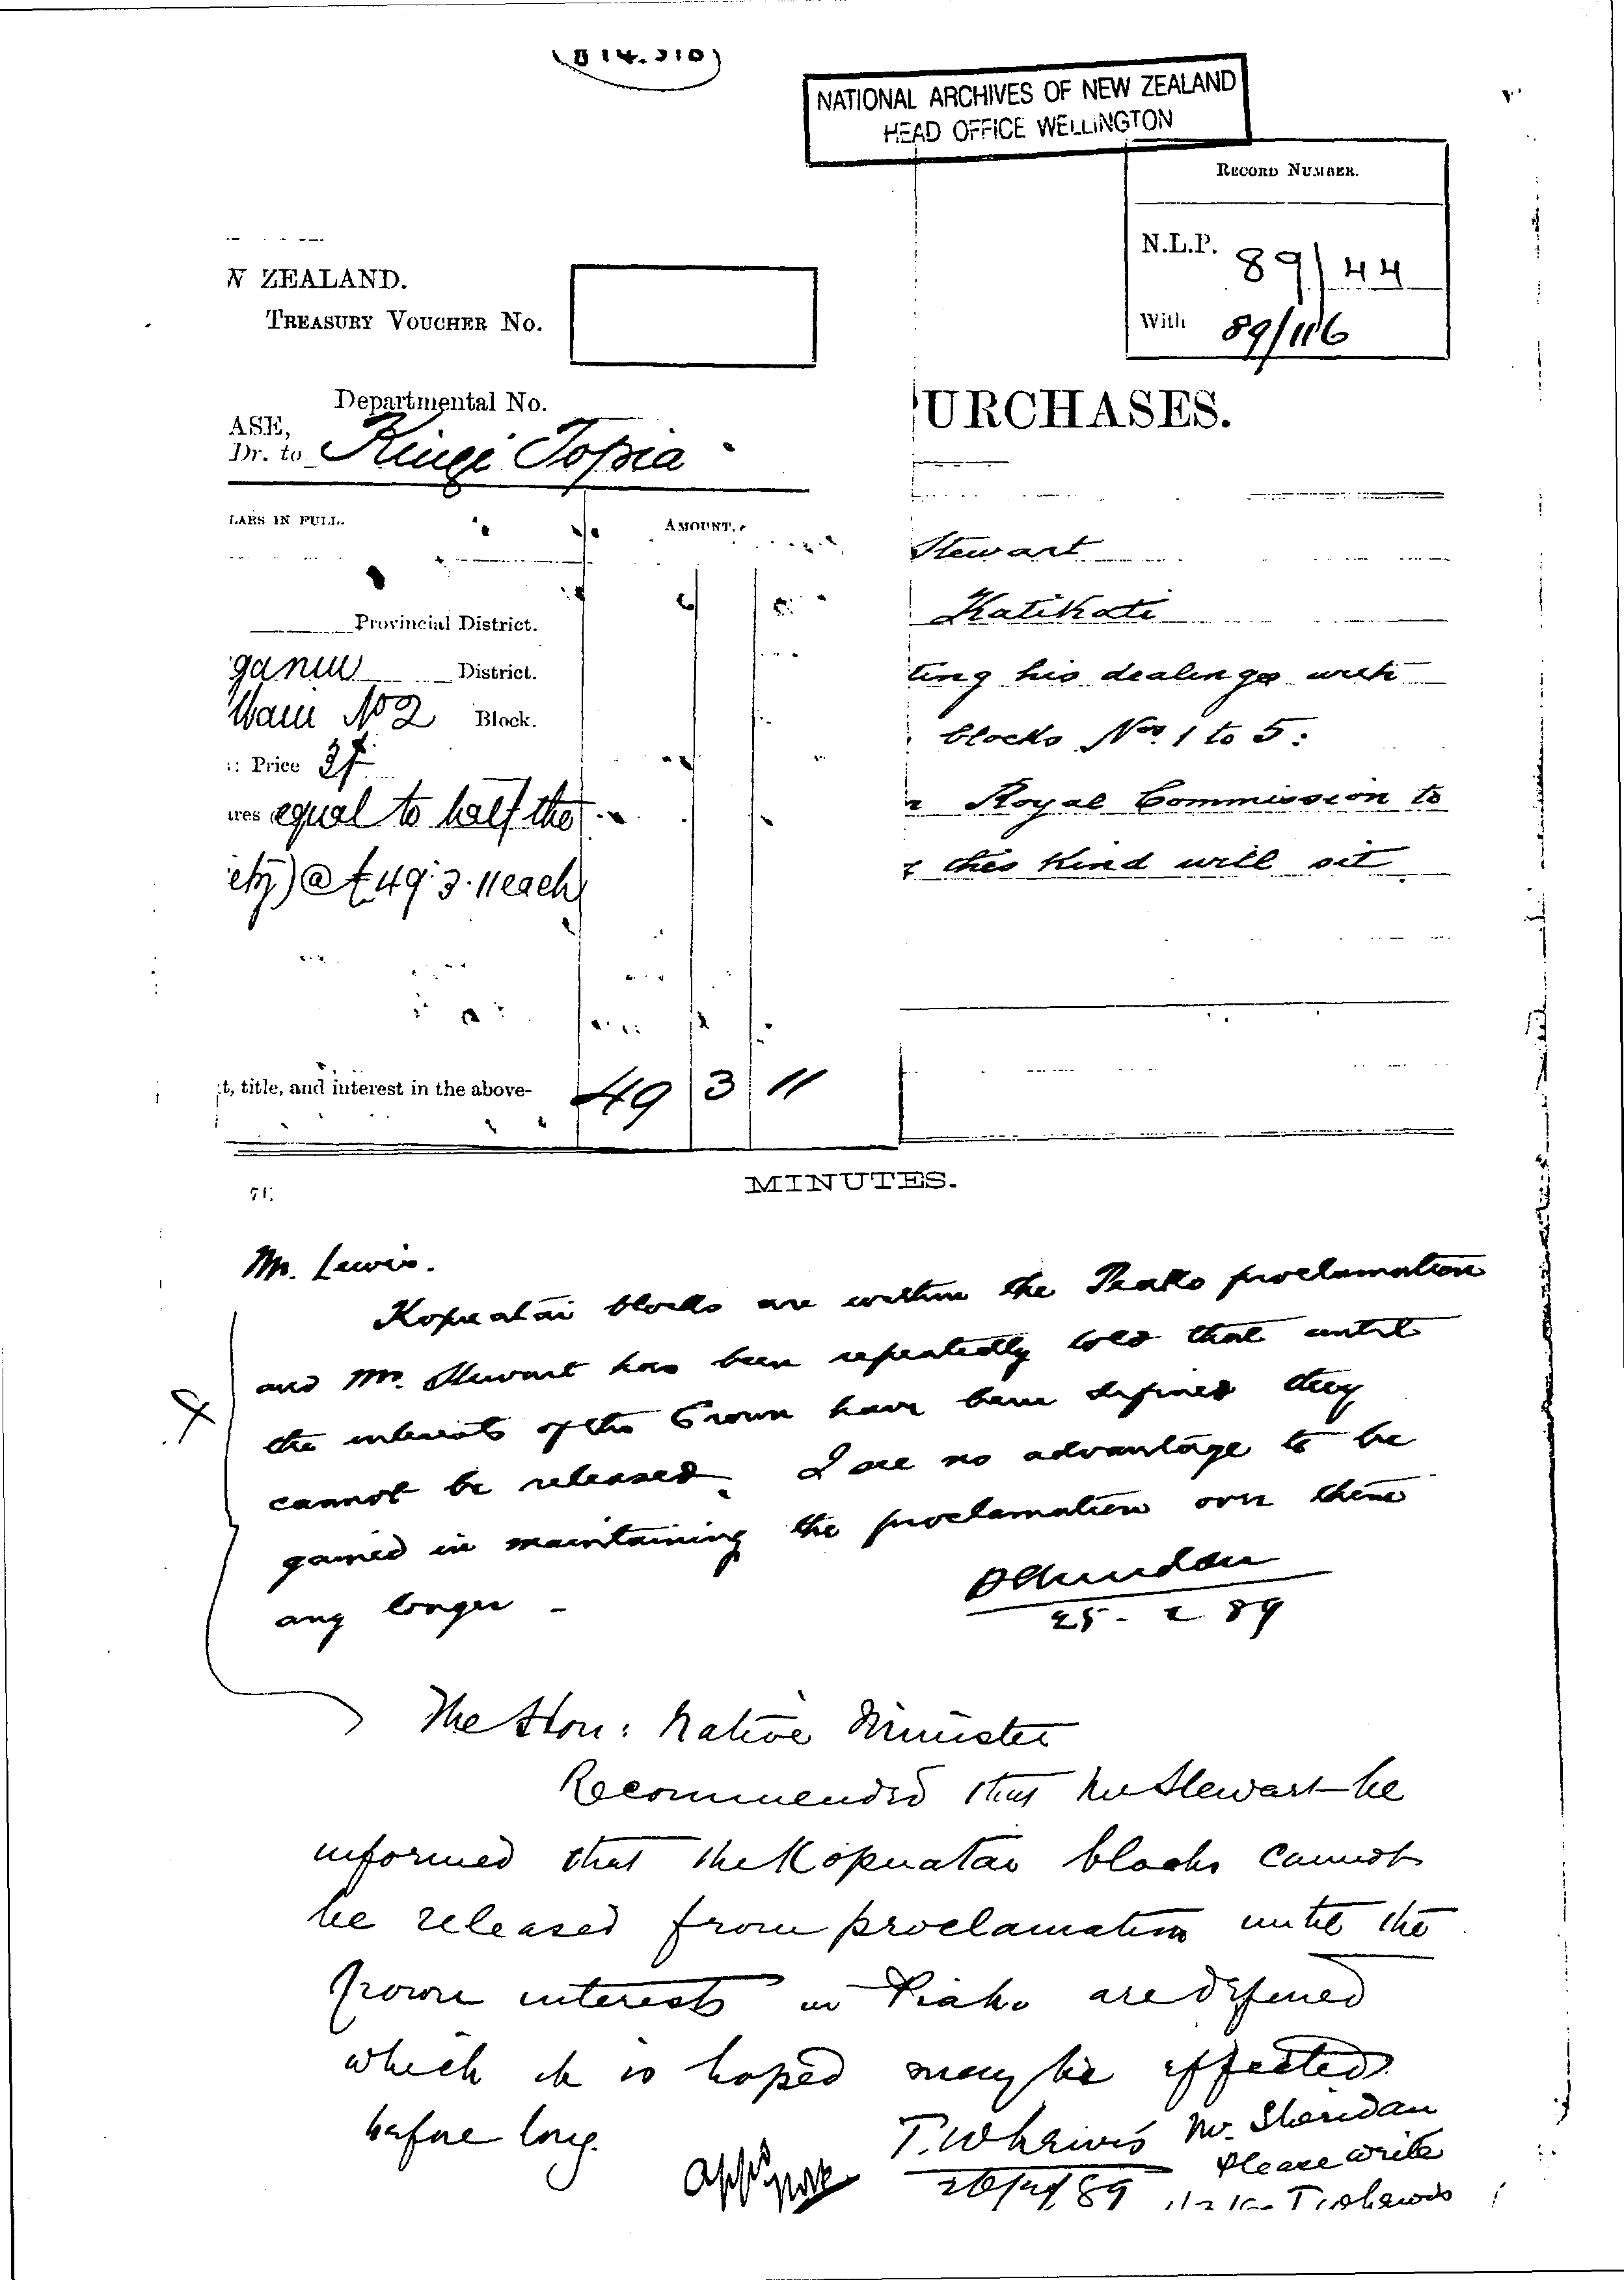 NATIONAL ARCHIVES OF NEW ZEALAND
HEAD OFFICE WELLINGTON
RECORD NUMBER.
N.L.P. 89/44
With 89/116
ZEALAND.
TREASURY VOUCHER No.
Departmental No.
ASE,
Dr. to Kingi Topia
URCHASES.
LARS IN FULL.
AMOUNT.
Stewart
Provincial District.
Katikati
ganui District.
ting his dealings with
No 2 Block.
blocks Nos. 1 to 5:
Price
Royal Commission to
equal to half the
this kind will sit
ety) @ £49.3.11 each
t, title, and interest in the above-
49 3 11
MINUTES.
Mr. Lewis.
Kopuatai blocks are within the Piako proclamation
and Mr. Stewart has been repeatedly told that until
the interests of the Crown have been defined they
cannot be released. I see no advantage to be
gained in maintaining the proclamation over them
any longer -
25 - 2 89
The Hon: Native Minister
Recommended that Mr Stewart be
informed that the Kopuatai blocks cannot
be released from proclamation until the
Crown interests in Piako are defined
which it is hoped may be effected
before long.
T.W. Lewis
Mr. Sheridan
Please write